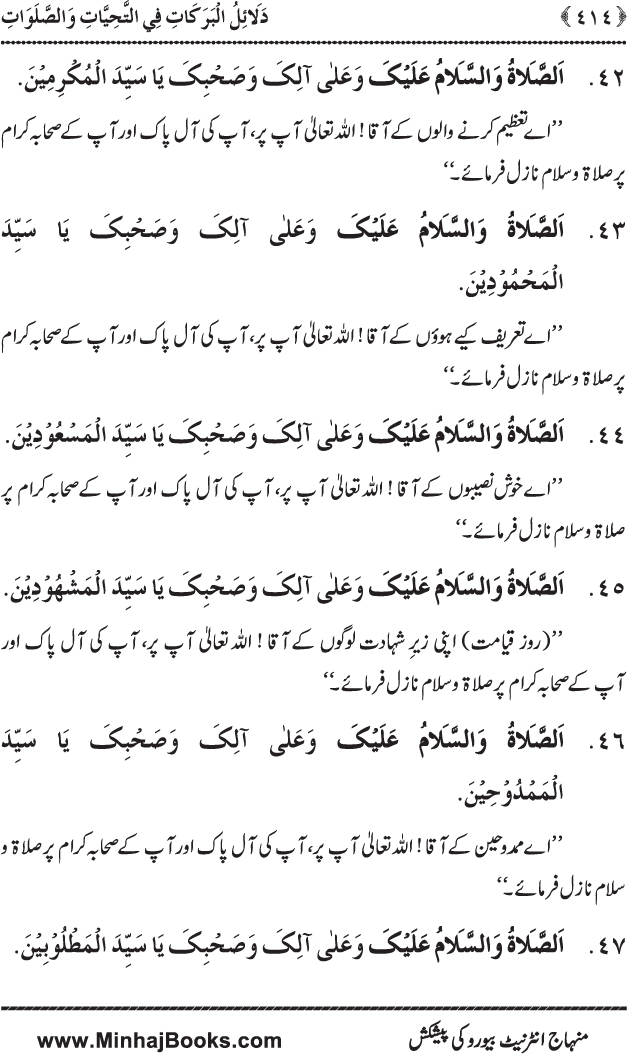 ﴿٤١٤﴾ دَلَائِلُ الْبَرَكَاتِ فِي التَّحِيَّاتِ وَالصَّلَوَاتِ
٤٢. اَلصَّلَاةُ وَالسَّلَامُ عَلَيْکَ وَعَلٰی آلِکَ وَصَحْبِکَ يَا سَيِّدَ الْمُکْرِمِيْنَ.
’’اے تعظیم کرنے والوں کے آقا! اللہ تعالیٰ آپ پر، آپ کی آل پاک اور آپ کے صحابہ کرام
پر صلاۃ وسلام نازل فرمائے۔‘‘
٤٣. اَلصَّلَاةُ وَالسَّلَامُ عَلَيْکَ وَعَلٰی آلِکَ وَصَحْبِکَ يَا سَيِّدَ
الْمَحْمُوْدِيْنَ.
’’اے تعریف کیے ہوؤں کے آقا! اللہ تعالیٰ آپ پر، آپ کی آل پاک اور آپ کے صحابہ کرام
پر صلاۃ وسلام نازل فرمائے۔‘‘
٤٤. اَلصَّلَاةُ وَالسَّلَامُ عَلَيْکَ وَعَلٰی آلِکَ وَصَحْبِکَ يَا سَيِّدَ الْمَسْعُوْدِيْنَ.
’’اے خوش نصیبوں کے آقا! اللہ تعالیٰ آپ پر، آپ کی آل پاک اور آپ کے صحابہ کرام پر
صلاۃ وسلام نازل فرمائے۔‘‘
٤٥. اَلصَّلَاةُ وَالسَّلَامُ عَلَيْکَ وَعَلٰی آلِکَ وَصَحْبِکَ يَا سَيِّدَ الْمَشْهُوْدِيْنَ.
’’(روز قیامت) اپنی زیرِ شہادت لوگوں کے آقا! اللہ تعالیٰ آپ پر، آپ کی آل پاک اور
آپ کے صحابہ کرام پر صلاۃ و سلام نازل فرمائے۔‘‘
٤٦. اَلصَّلَاةُ وَالسَّلَامُ عَلَيْکَ وَعَلٰی آلِکَ وَصَحْبِکَ يَا سَيِّدَ
الْمَمْدُوْحِيْنَ.
’’اے ممدوحین کے آقا! اللہ تعالیٰ آپ پر، آپ کی آل پاک اور آپ کے صحابہ کرام پر صلاۃ و
سلام نازل فرمائے۔‘‘
٤٧. اَلصَّلَاةُ وَالسَّلَامُ عَلَيْکَ وَعَلٰی آلِکَ وَصَحْبِکَ يَا سَيِّدَ الْمَطْلُوْبِيْنَ.
منہاج انٹرنیٹ بیورو کی پیشکش www.MinhajBooks.com